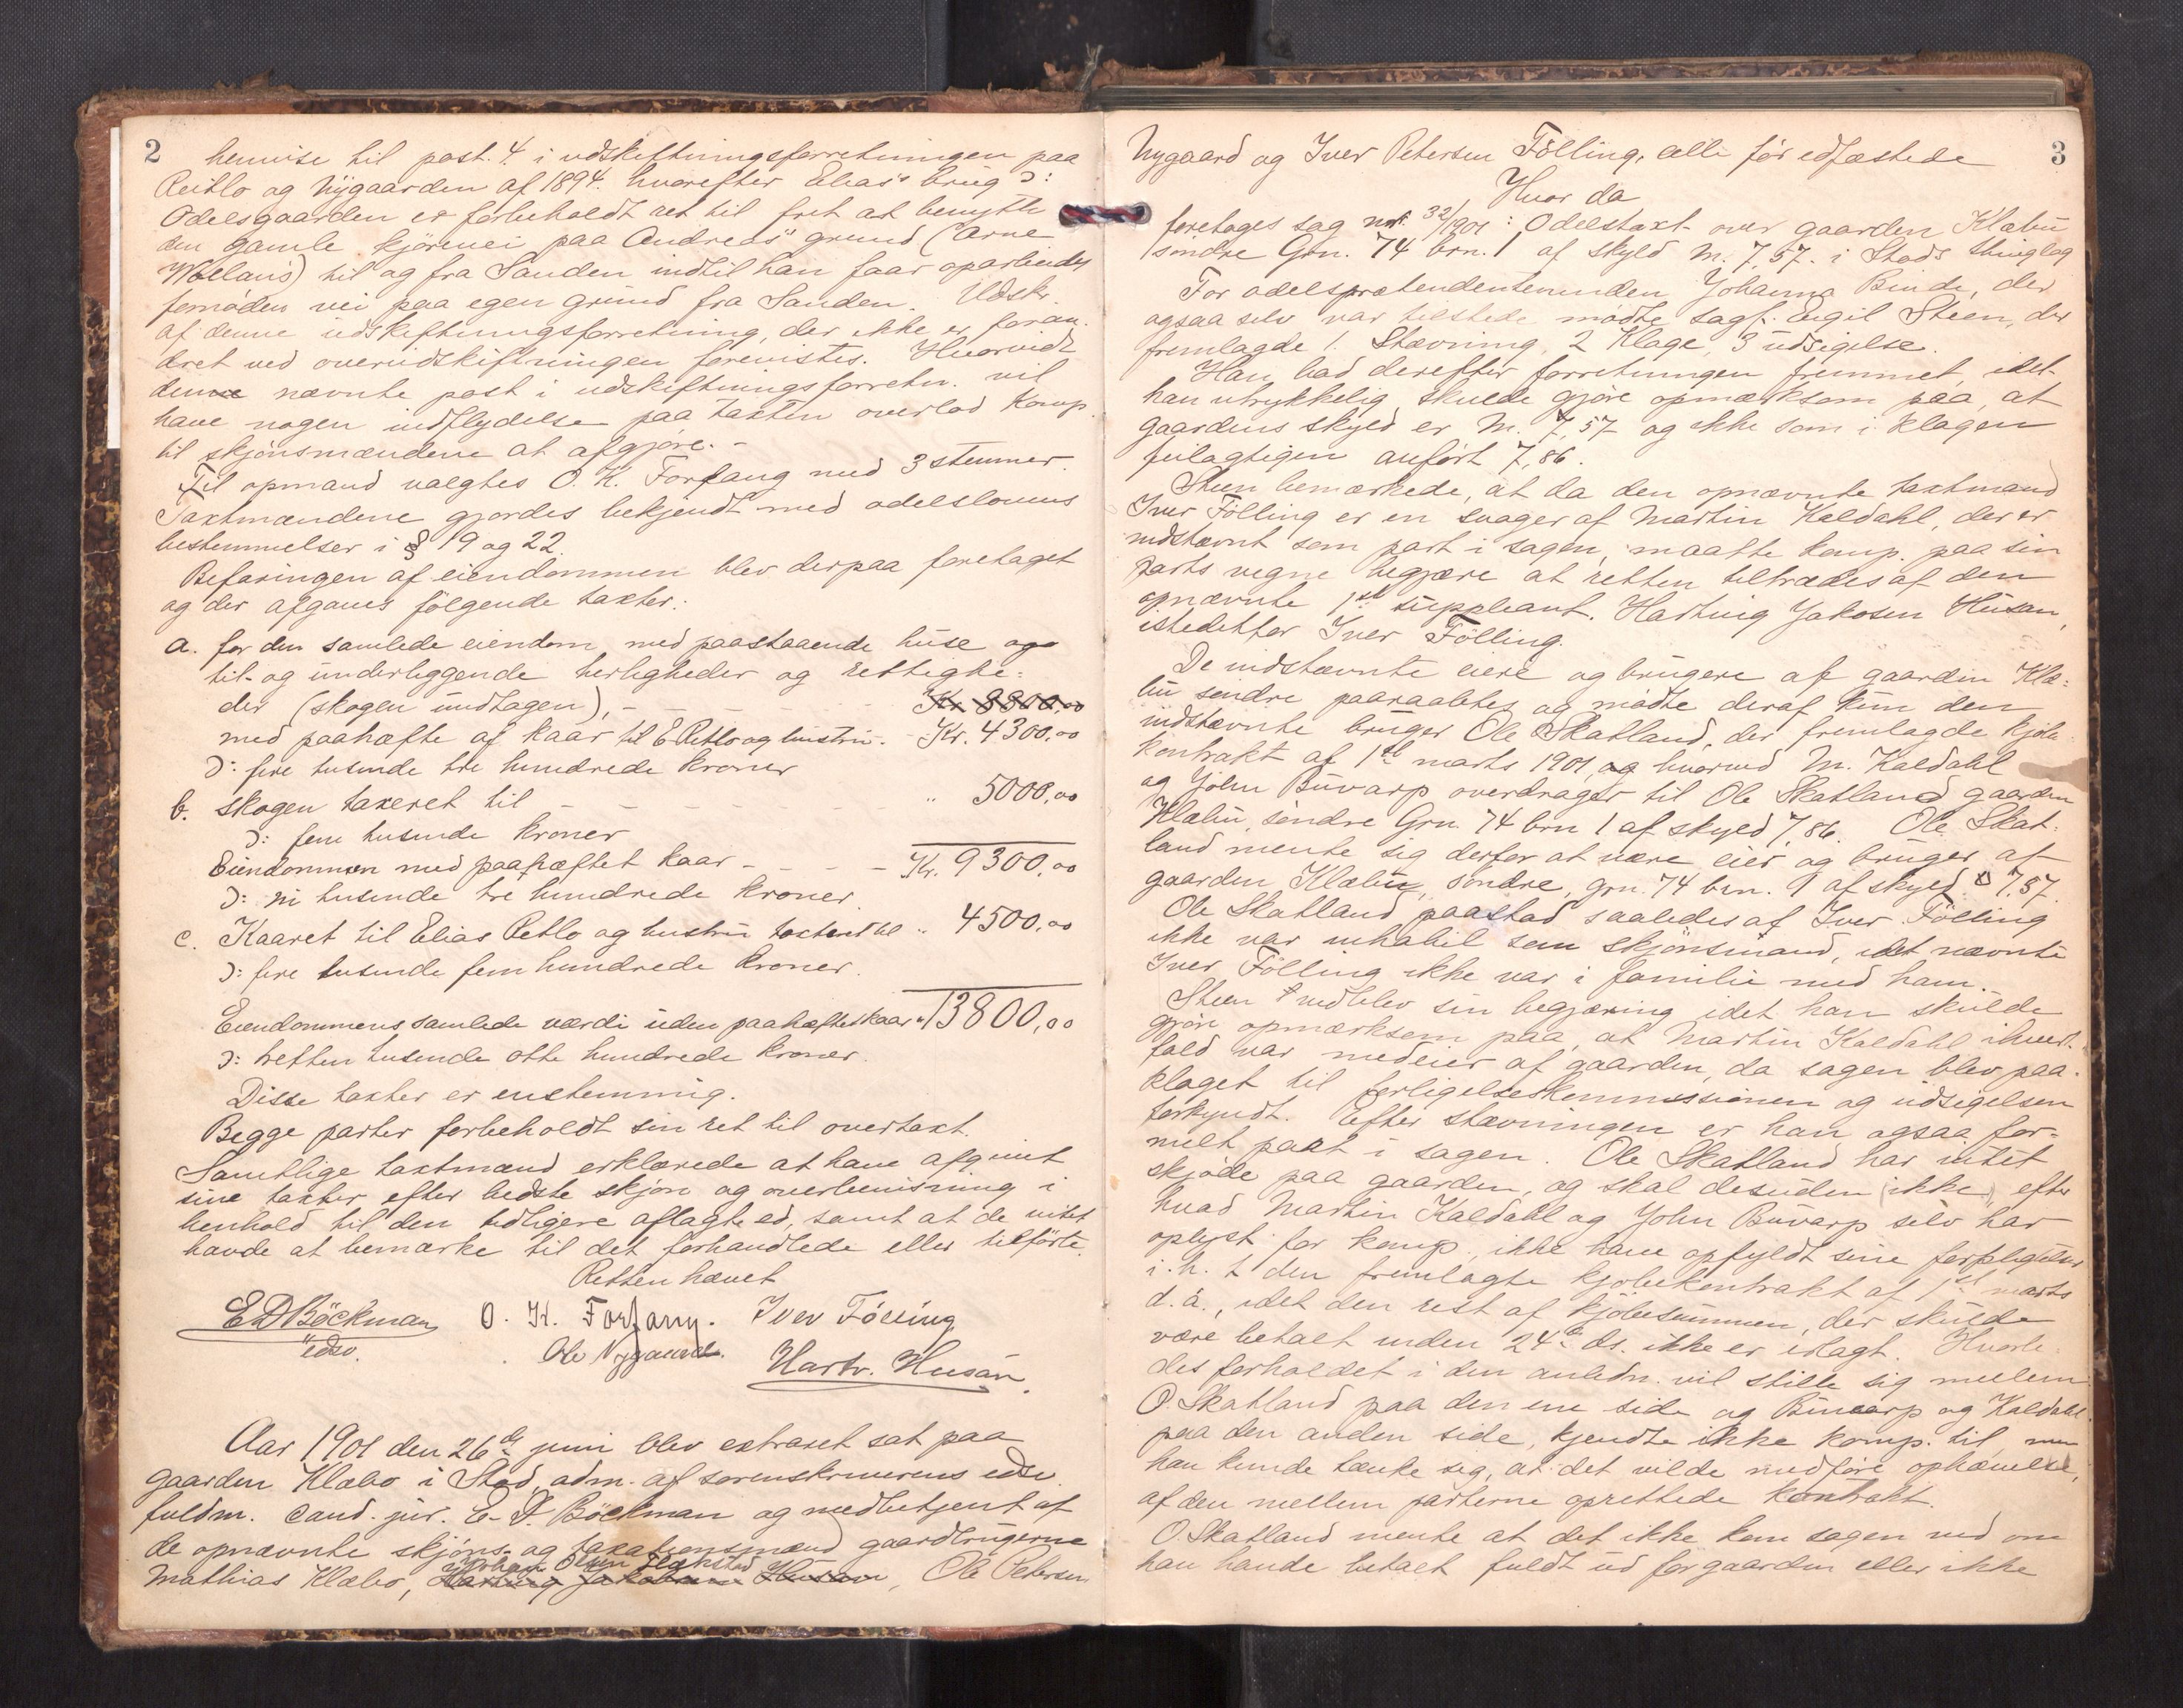 2
henvise til post. 4 i udskiftningsforretningen paa
Reitlo og Nygaarden af 1894. hvorefter Elias's brug ɔ:
Odelsgaarden er forbeholdt ret til frit at benytte
den gamle kjörevei paa Andreas's grund (Arne
Wollans) til og fra Sanden indtil han faar oparbeidet
fornöden vei paa egen grund fra Sanden. Udskr.
af denne udskiftningsforretning, der ikke er foran-
dret ved overudskiftningen forevistes. Hvorvidt
denne nævnte post i udskiftningsforretn. vil
have nogen indflydelse paa taxten overlod Komp.
til skjönsmændene at afgjöre. -
Til opmand valgtes O. K. Forfang med 3 stemmer.
Taxtmændene gjordes bekjendt med odelslovens
bestemmelser i § 19 og 22.
Befaringen af eiendommen blev derpaa foretaget
og der afgaves fölgende taxter:
a. for den samlede eiendom med paastaaende huse og
til- og underliggende herligheder og rettighe-
der (skogen undtagen), - Kr. 8800,00
med paahæfte af kaar til E Retlo og hustru. - Kr. 4300,00
ɔ: fire tusinde tre hundrede kroner
b. skogen taxeret til - - - - - " 5000,00
ɔ: fem tusinde kroner
Eiendommen med paahæftet kaar - - - Kr. 9300,00
ɔ: ni tusinde tre hundrede kroner.
c. Kaaret til Elias Retlo og hustru taxteret til " 4500,00
ɔ: fire tusinde fem hundrede kroner.
Eiendommens samlede værdi uden paahæftet kaar " 13800,00
ɔ: tretten tusinde otte hundrede kroner.
Disse taxter er enstemmig.
Begge parter forbeholdt sin ret til overtaxt.
Samtlige taxtmænd erklærede at have afgivet
sine taxter efter bedste skjön og overbevisning i
henhold til den tidligere aflagte ed, samt at de intet
havde at bemærke til det forhandlede eller tilförte.
Retten hævet
E D Böckman O. K. Forfang. Iver Fölling
edsv. Ole Nygaard. Hartv. Husan.
Aar 1901 den 26de juni blev extraret sat paa
gaarden Klæbo i Stod adm. af sorenskriverens edsv.
fuldm. cand. jur. E. D. Böckman og medbetjent af
de opnævnte skjöns- og taxationsmænd gaardbrugerne
Johan Olsen
Mathias Klæbo, Hartvig Jakobsen Husan, Ole Petersen
3
Nygaard og Iver Petersen Fölling, alle för edfæstede
Hvor da
foretoges sag nr. 32/1901: Odelstaxt over gaarden Klæbu
söndre Grn. 74 brn. 1 af skyld M. 7,57. i Stods thinglag
For odelsprætendentinden Johanna Binde, der
ogsaa selv var tilstede mödte sagf. Eigil Steen, der
fremlagde 1. Stævning, 2 Klage, 3 udsigelse.
Han bad derefter forretningen fremmet, idet
han utrykkelig skulde gjöre opmærksom paa, at
gaardens skyld er M. 7,57 og ikke som i klagen
feilagtigen anfört 7,86.
Steen bemærkede, at da den opnævnte taxtmand
Iver Fölling er en svager af Martin Kaldahl, der er
indstævnt som part i sagen, maatte komp. paa sin
parts vegne begjære at retten tiltrædes af den
opnævnte 1ste suppleant. Hartvig Jakosen Husan,
istedetfor Iver Fölling.
De indstævnte eiere og brugere af gaarden Klæ-
bu söndre paaraabtes og mödte deraf kun den
indstævnte bruger Ole Skatland, der fremlagde kjöbe-
kontrakt af 1ste marts 1901, og hvorved M. Kaldahl
og John Buvarp overdrager til Ole Skatland gaarden
Klæbu, söndre Grn. 74 brn 1 af skyld 7,86. Ole Skat-
land mente sig derfor at være eier og bruger af
gaarden Klæbu, söndre, grn. 74 brn. 1 af skyld 7,57.
Ole Skatland paastod saaledes at Iver Fölling
ikke var inhabil som skjönsmand, idet nævnte
Iver Fölling ikke var i familie med ham.
Steen vedblev sin begjæring idet han skulde
gjöre opmærksom paa, at Martin Kaldahl ihvert-
fald var medeier af gaarden, da sagen blev paa-
klaget til forligelseskommissionen og udsigelsen
forkyndt. Efter stævningen er han ogsaa for-
melt part i sagen. Ole Skatland har intet
skjöde paa gaarden, og skal desuden (ikke), efter
hvad Martin Kaldahl og John Buvarp selv har
oplyst for komp., ikke have opfyldt sine forpligtelser
i. h. t den fremlagte kjöbekontrakt af 1ste marts
d. a., idet den rest af kjöbesummen, der skulde
være betalt inden 24de ds. ikke er erlagt. Hvorle-
des forholdet i den anledn. vil stille sig mellem
O. Skatland paa den ene side og Buvarp og Kaldahl
paa den anden side, kjendte ikke komp. til, men
han kunde tænke sig, at det vilde medföre ophævelse,
af den mellem parterne oprettede kontrakt.
O. Skatland mente at det ikke kom sagen ved om
han havde betalt fuldt ud for gaarden eller ikke